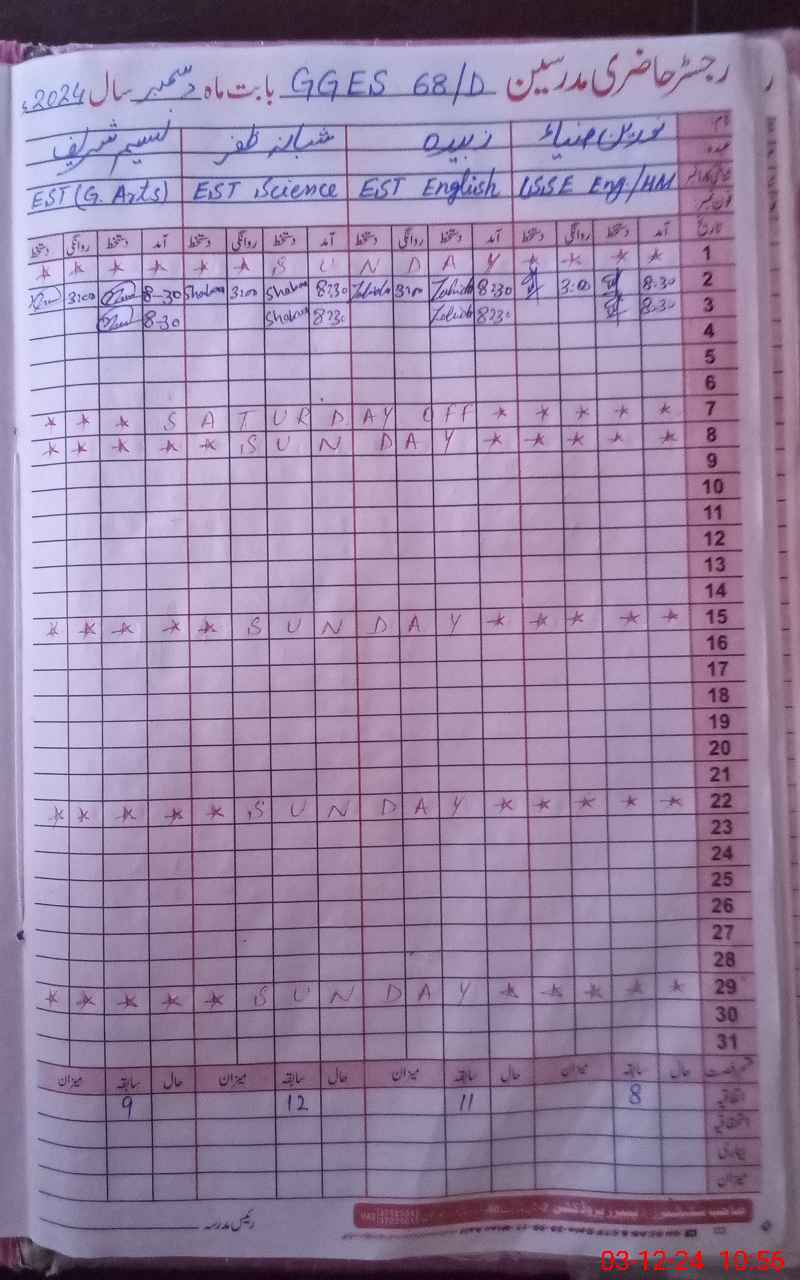 رجسٹر حاضری مدرسین GGES 68/D بابت ماہ دسمبر سال 2024ء
نام نورین ضیاء زبیدہ شبانہ ظفر نسیم شریف
عہدہ
SSE Eng/HM EST English EST Science EST (G. Arts)
تاریخ آمد دستخط روانگی دستخط آمد دستخط روانگی دستخط آمد دستخط روانگی دستخط آمد دستخط روانگی دستخط
1 * * * * * * * * * * S U N D A Y * * * *
2 8-30 3:00 8:30 Zubida 3:00 Zubida 8:30 Shabana 3:00 Shabana 8-30 3:00
3 8-30 8:30 Zubida 8:30 Shabana 8-30
4
5
6
7 * * * S A T U R D A Y O F F * * * * *
8 * * * * * S U N D A Y * * * * *
9
10
11
12
13
14
15 * * * * * S U N D A Y * * * * *
16
17
18
19
20
21
22 * * * * * S U N D A Y * * * * *
23
24
25
26
27
28
29 * * * * * S U N D A Y * * * * *
30
31
حال سابقہ میزان حال سابقہ میزان حال سابقہ میزان حال سابقہ میزان
اتفاقیہ 8 11 12 9
بیماری
میزان
رئیس مدرسہ
03-12-24 10:56